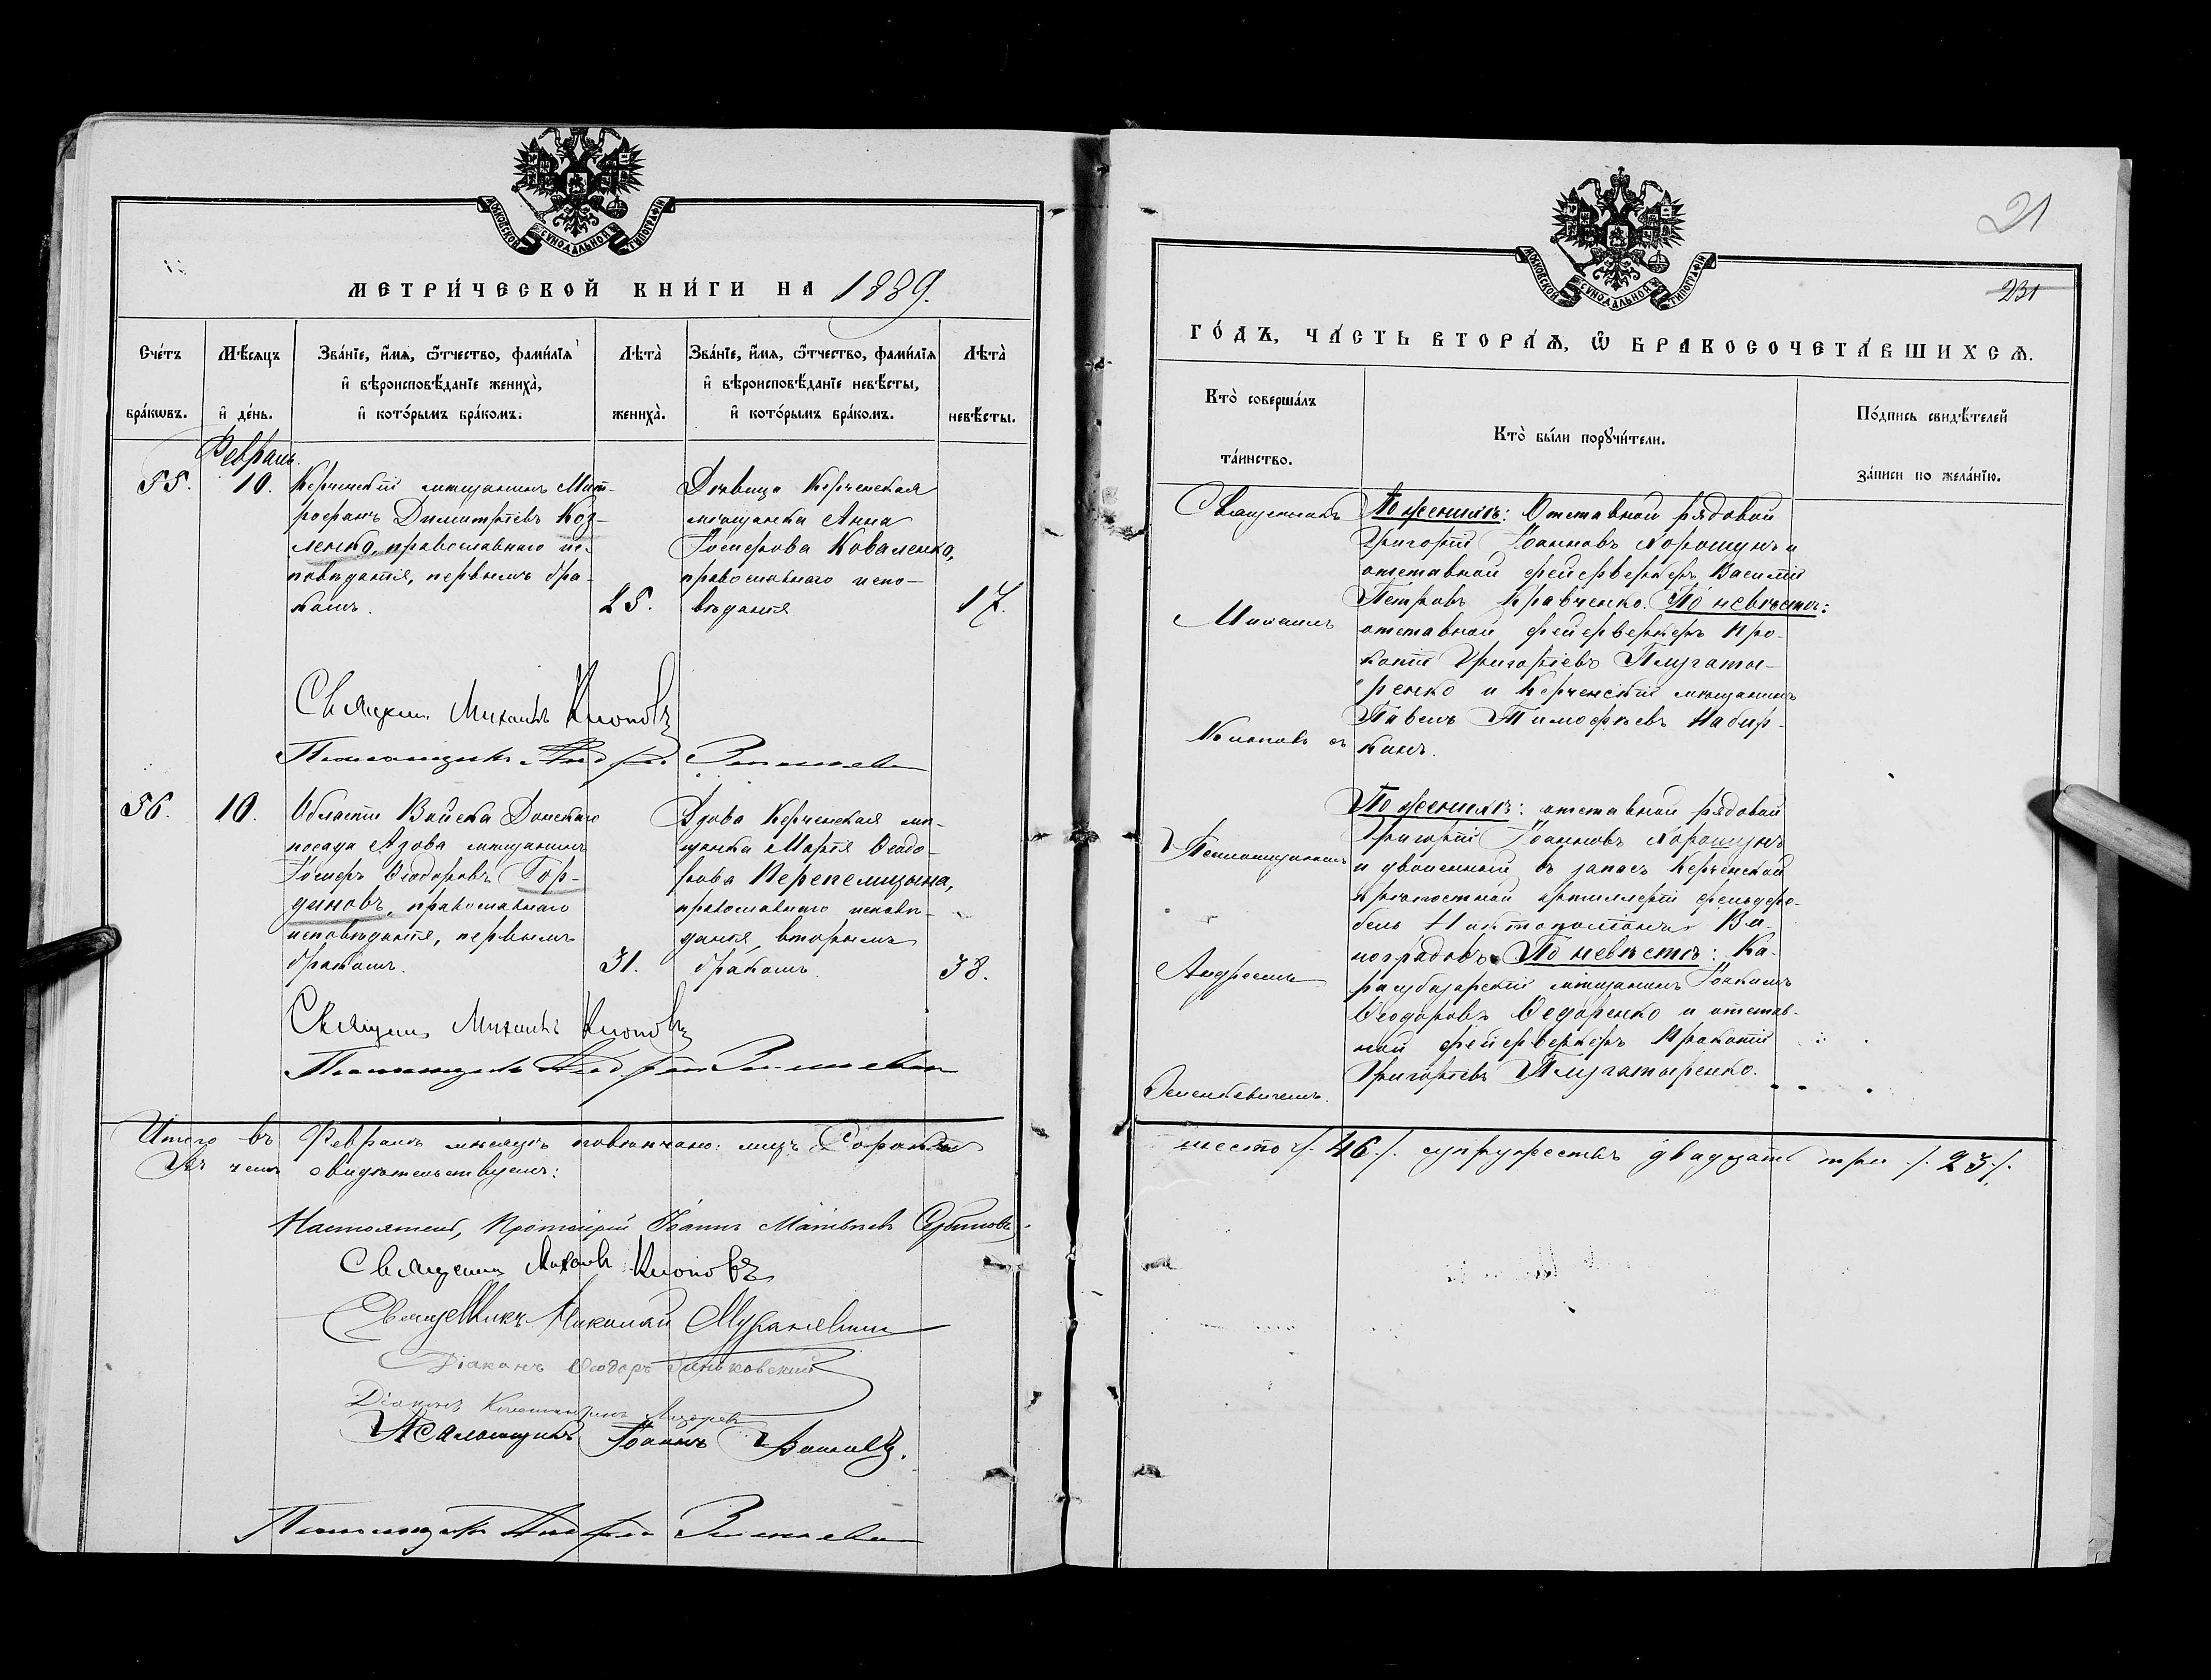 МОСКОВСКОЙ СѴНОДАЛЬНОЙ ТИПОГРАФІИ
МЕТРИ́ЧЕСКОЙ КНИ́ГИ НА 1889.
Сче́тъ бра́кѡвъ.
Мѣ́сяцъ и҆ де́нь.
Зва́нїе, и҆́мя, ѻ҆́тчество, фами́лїя и҆ вѣроисповѣ́данїе жениха̀, и҆ кото́рымъ бра́комъ.
Лѣта̀ жениха̀.
Зва́нїе, и҆́мя, ѻ҆́тчество, фами́лїя и҆ вѣроисповѣ́данїе невѣ́сты, и҆ кото́рымъ бра́комъ.
Лѣта̀ невѣ́сты.
Февраль.
55.
10.
Керченскій мѣщанинъ Мит-
рофанъ Димитріевъ Коз-
ленко, православнаго ис-
повѣданія, первымъ бра-
комъ.
25.
Дѣвица Керченская
мѣщанка Анна
Іосифова Коваленко,
православнаго испо-
вѣданія
17.
Священникъ Михаилъ Клоповъ
Псаломщикъ Андрей
56.
10.
Области Войска Донскаго
посада Азова мѣщанинъ
Іосифъ Ѳеодоровъ Гор-
диновъ, православнаго
исповѣданія, первымъ
бракомъ.
31.
Вдова Керченская мѣ-
щанка Марія Ѳеодо-
рова Перепелицына,
православнаго исповѣ-
данія, вторымъ
бракомъ.
38.
Священ Михаилъ Клоповъ
Псаломщикъ Андрей
Итого въ Февралѣ мѣсяцѣ повѣнчано: лицъ Сорокъ
Въ чемъ свидѣтельствуемъ:
Настоятель, Протоіерей Іоаннъ Матвѣевъ
Священникъ Михаилъ Клоповъ
Священникъ Николай
Діаконъ Ѳеодоръ
Діаконъ Константинъ
Псаломщикъ Іоаннъ
Псаломщикъ Андрей
21
231
МОСКОВСКОЙ СѴНОДАЛЬНОЙ ТИПОГРАФІИ
ГО́ДЪ, ЧА́СТЬ ВТОРА́Ѧ, Ѽ БРАКОСОЧЕТА́ВШИХСѦ.
Кто̀ соверша́лъ та́инство.
Кто̀ бы́ли порꙋчи́тели.
По́дпись свидѣ́телей за́писи по жела́нїю.
Священникъ
Михаилъ
Клоповъ съ
Псаломщикомъ
Андреемъ
Зеленкевичемъ.
По женихѣ: Отставной рядовой
Григорій Іоанновъ Хорошунъ и
отставной фейерверкеръ Василій
Петровъ Кравченко. По невѣстѣ:
отставной фейерверкеръ Про-
копій Григоріевъ Плугаты-
ренко и Керченскій мѣщанинъ
Павелъ Тимофѣевъ Набир-
канъ.
По женихѣ: отставной рядовой
Григорій Іоанновъ Хорошунъ
и уволенный въ запасъ Керченской
крѣпостной артиллеріи фельдфе-
бель Ви-
ноградовъ. По невѣстѣ: Ка-
расубазарскій мѣщанинъ Іоакимъ
Ѳеодоровъ Ѳедоренко и отстав-
ной фейерверкеръ Прокопій
Григоріевъ Плугатыренко.
шесть /.46./. супружествъ двадцать три ./.23./.